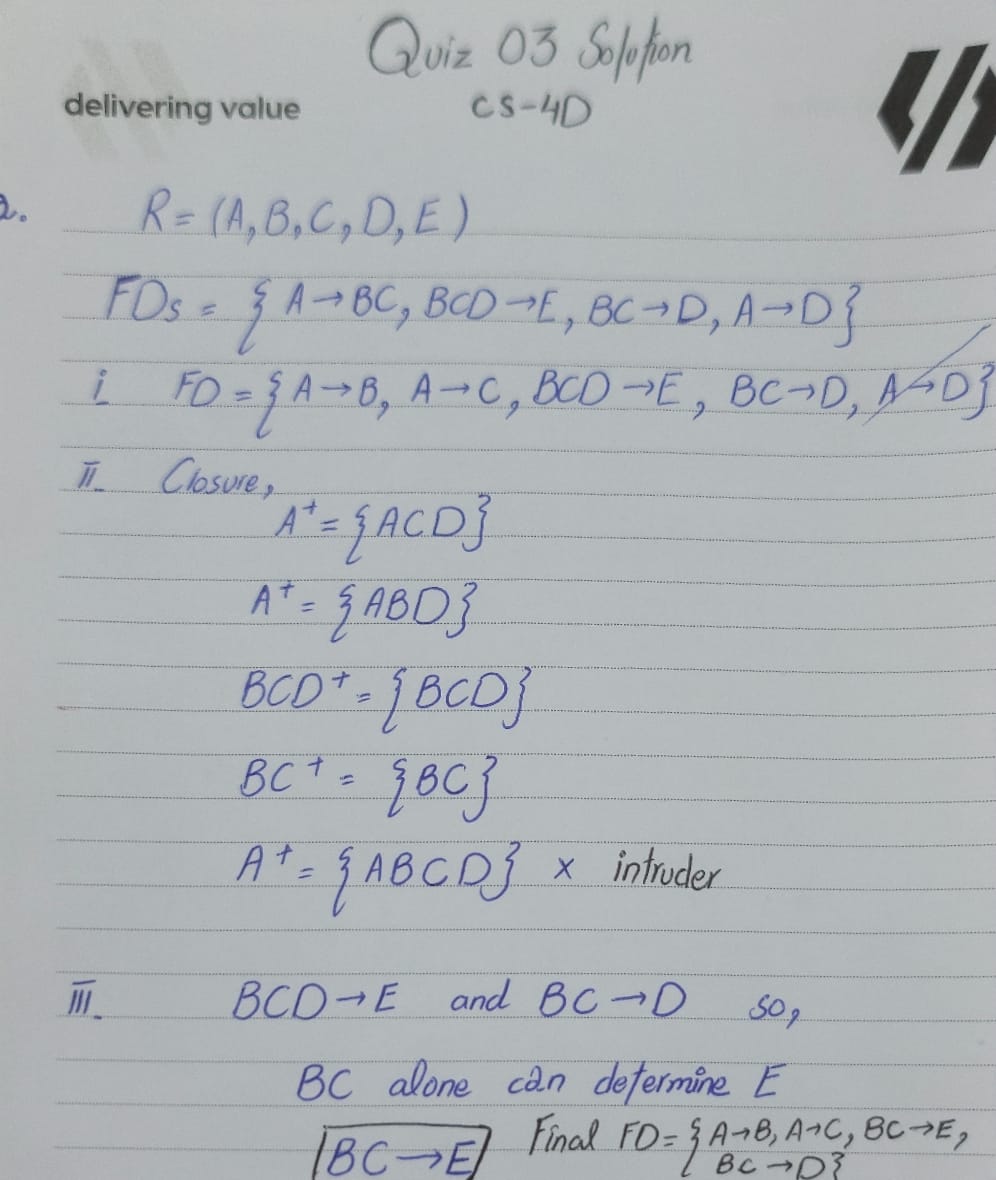 Quiz 03 Solution
delivering value
CS-4D
2. R = (A, B, C, D, E)
FDs = { A→BC, BCD→E, BC→D, A→D}
i FD = { A→B, A→C, BCD→E, BC→D, A→D}
ii. Closure,
A⁺ = {ACD}
A⁺ = {ABD}
BCD⁺ = {BCD}
BC⁺ = {BC}
A⁺ = {ABCD} x intruder
iii. BCD→E and BC→D so,
BC alone can determine E
BC→E Final FD = { A→B, A→C, BC→E,
BC→D}